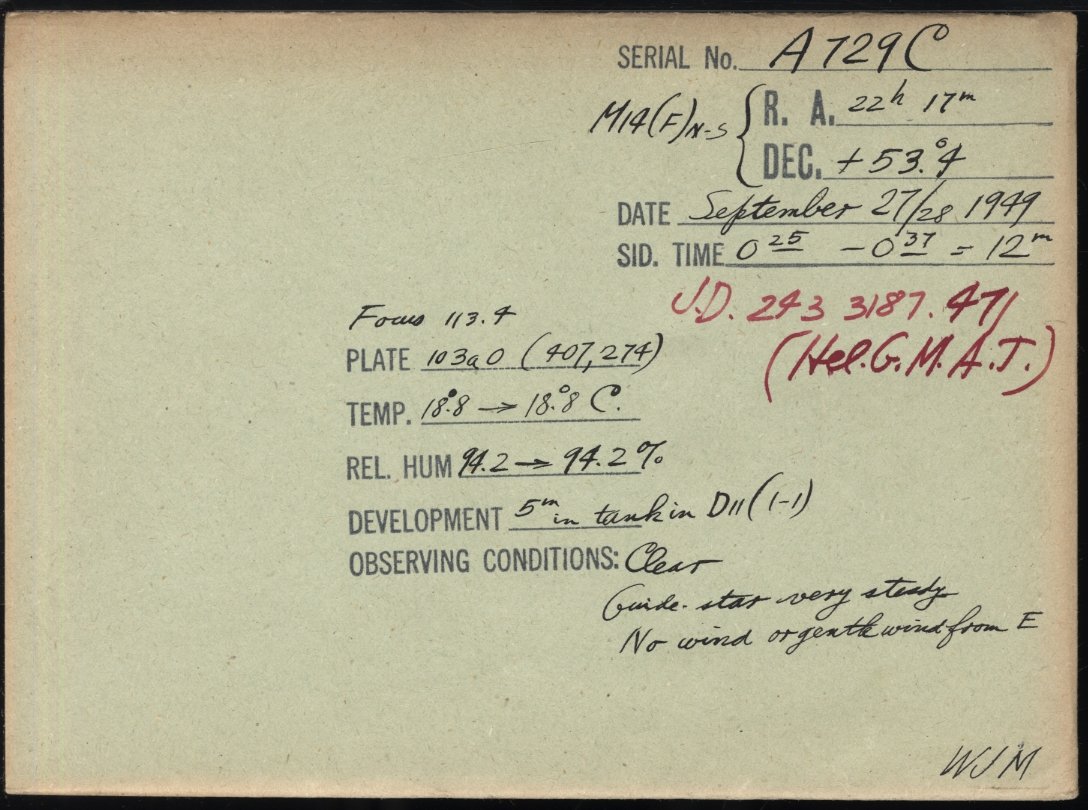 SERIAL No. A729C
M14(F)N-S { R. A. 22h 17m
DEC. +53.°4
DATE September 27/28 1949
SID. TIME 0 25 – 0 37 = 12m
J.D. 243 3187.471
(Hel. G.M.A.T.)
Focus 113.4
PLATE 103aO (407,274)
TEMP. 18.°8 → 18.°8 C.
REL. HUM 94.2 → 94.2%
DEVELOPMENT 5m in tank in D11 (1-1)
OBSERVING CONDITIONS: Clear
Guide-star very steady
No wind or gentle wind from E
WJM